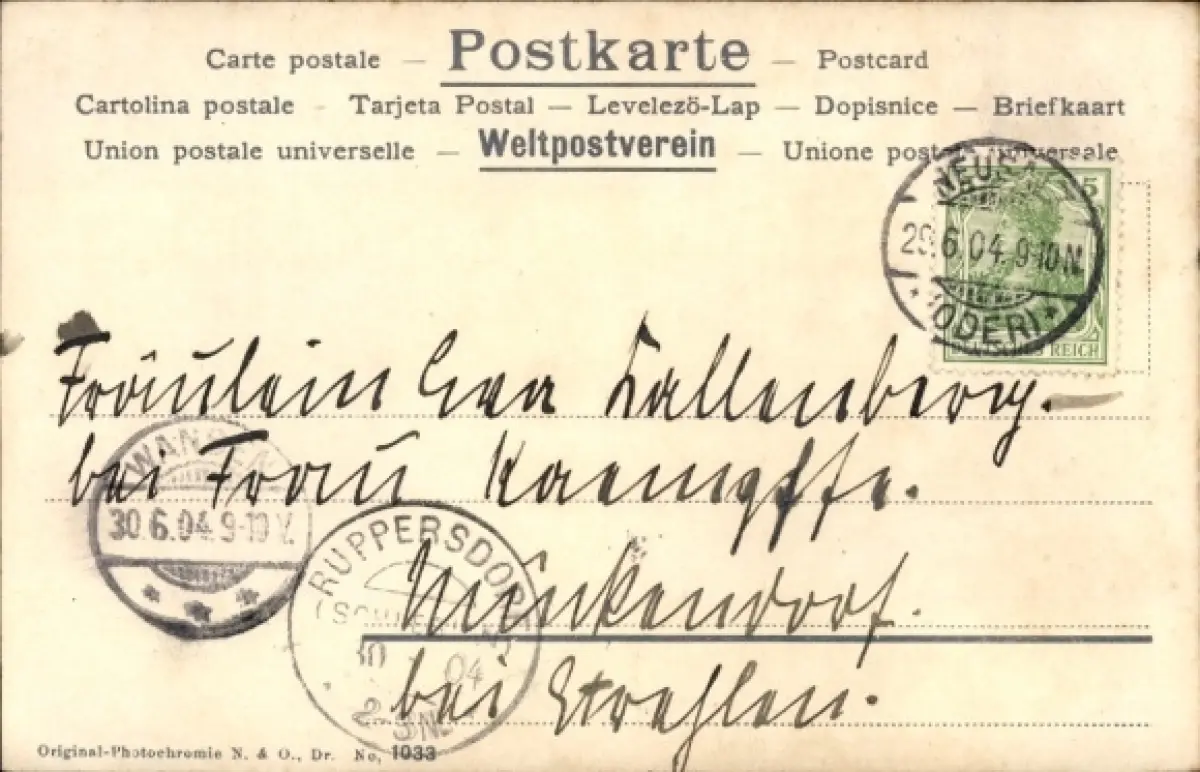 Carte postale — Postkarte — Postcard
Cartolina postale - Tarjeta Postal — Levelezö-Lap — Dopisnice — Briefkaart
Union postale universelle — Weltpostverein — Unione postale universale
5
NEUSALZ
29.6.04. 9-10 N.
* (ODER) *
DEUTSCHES REICH
Fräulein Eva Kallenberg.
bei Frau Kaempffe.
WANSEN
30.6.04. 9-10 V.
RUPPERSDORF
Münkendorf.
04
2-3N.
bei Strehlen.
Original-Photochromie N. & O., Dr. No, 1033